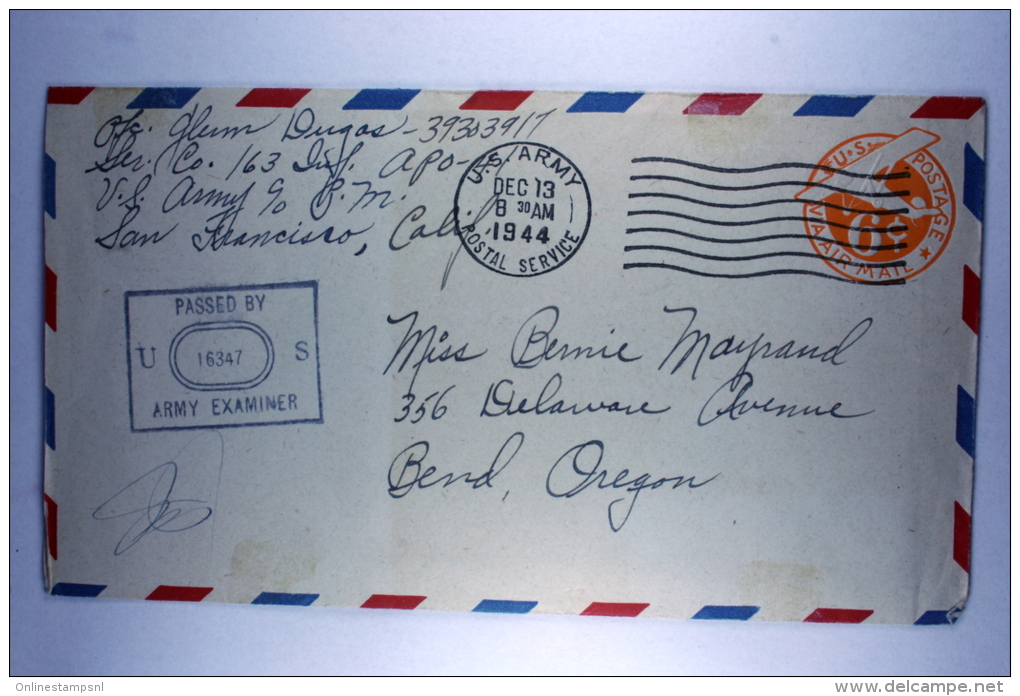 Pfc. Glenn Dugas - 39303917
Ser. Co. 163 Inf. APO-
U.S. Army c/o P.M.
San Francisco, Calif.
U.S. ARMY
DEC 13
8 30 AM
1944
POSTAL SERVICE
U.S. POSTAGE
6¢
VIA AIR MAIL
PASSED BY
U 16347 S
ARMY EXAMINER
Miss Bernie Mayrand
356 Delaware Avenue
Bend, Oregon
Onlinestampsnl
www.delcampe.net